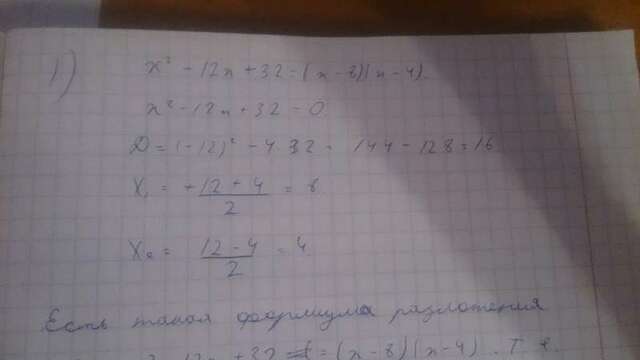 1) x² - 12x + 32 = (x - 8)(x - 4).
x² - 12x + 32 = 0
D = (-12)² - 4·32 = 144 - 128 = 16
X₁ = +12 + 4 / 2 = 8
X₂ = 12 - 4 / 2 = 4
Есть такая формула разложения
- 12x + 32 = (x - 8)(x - 4). Т. е.